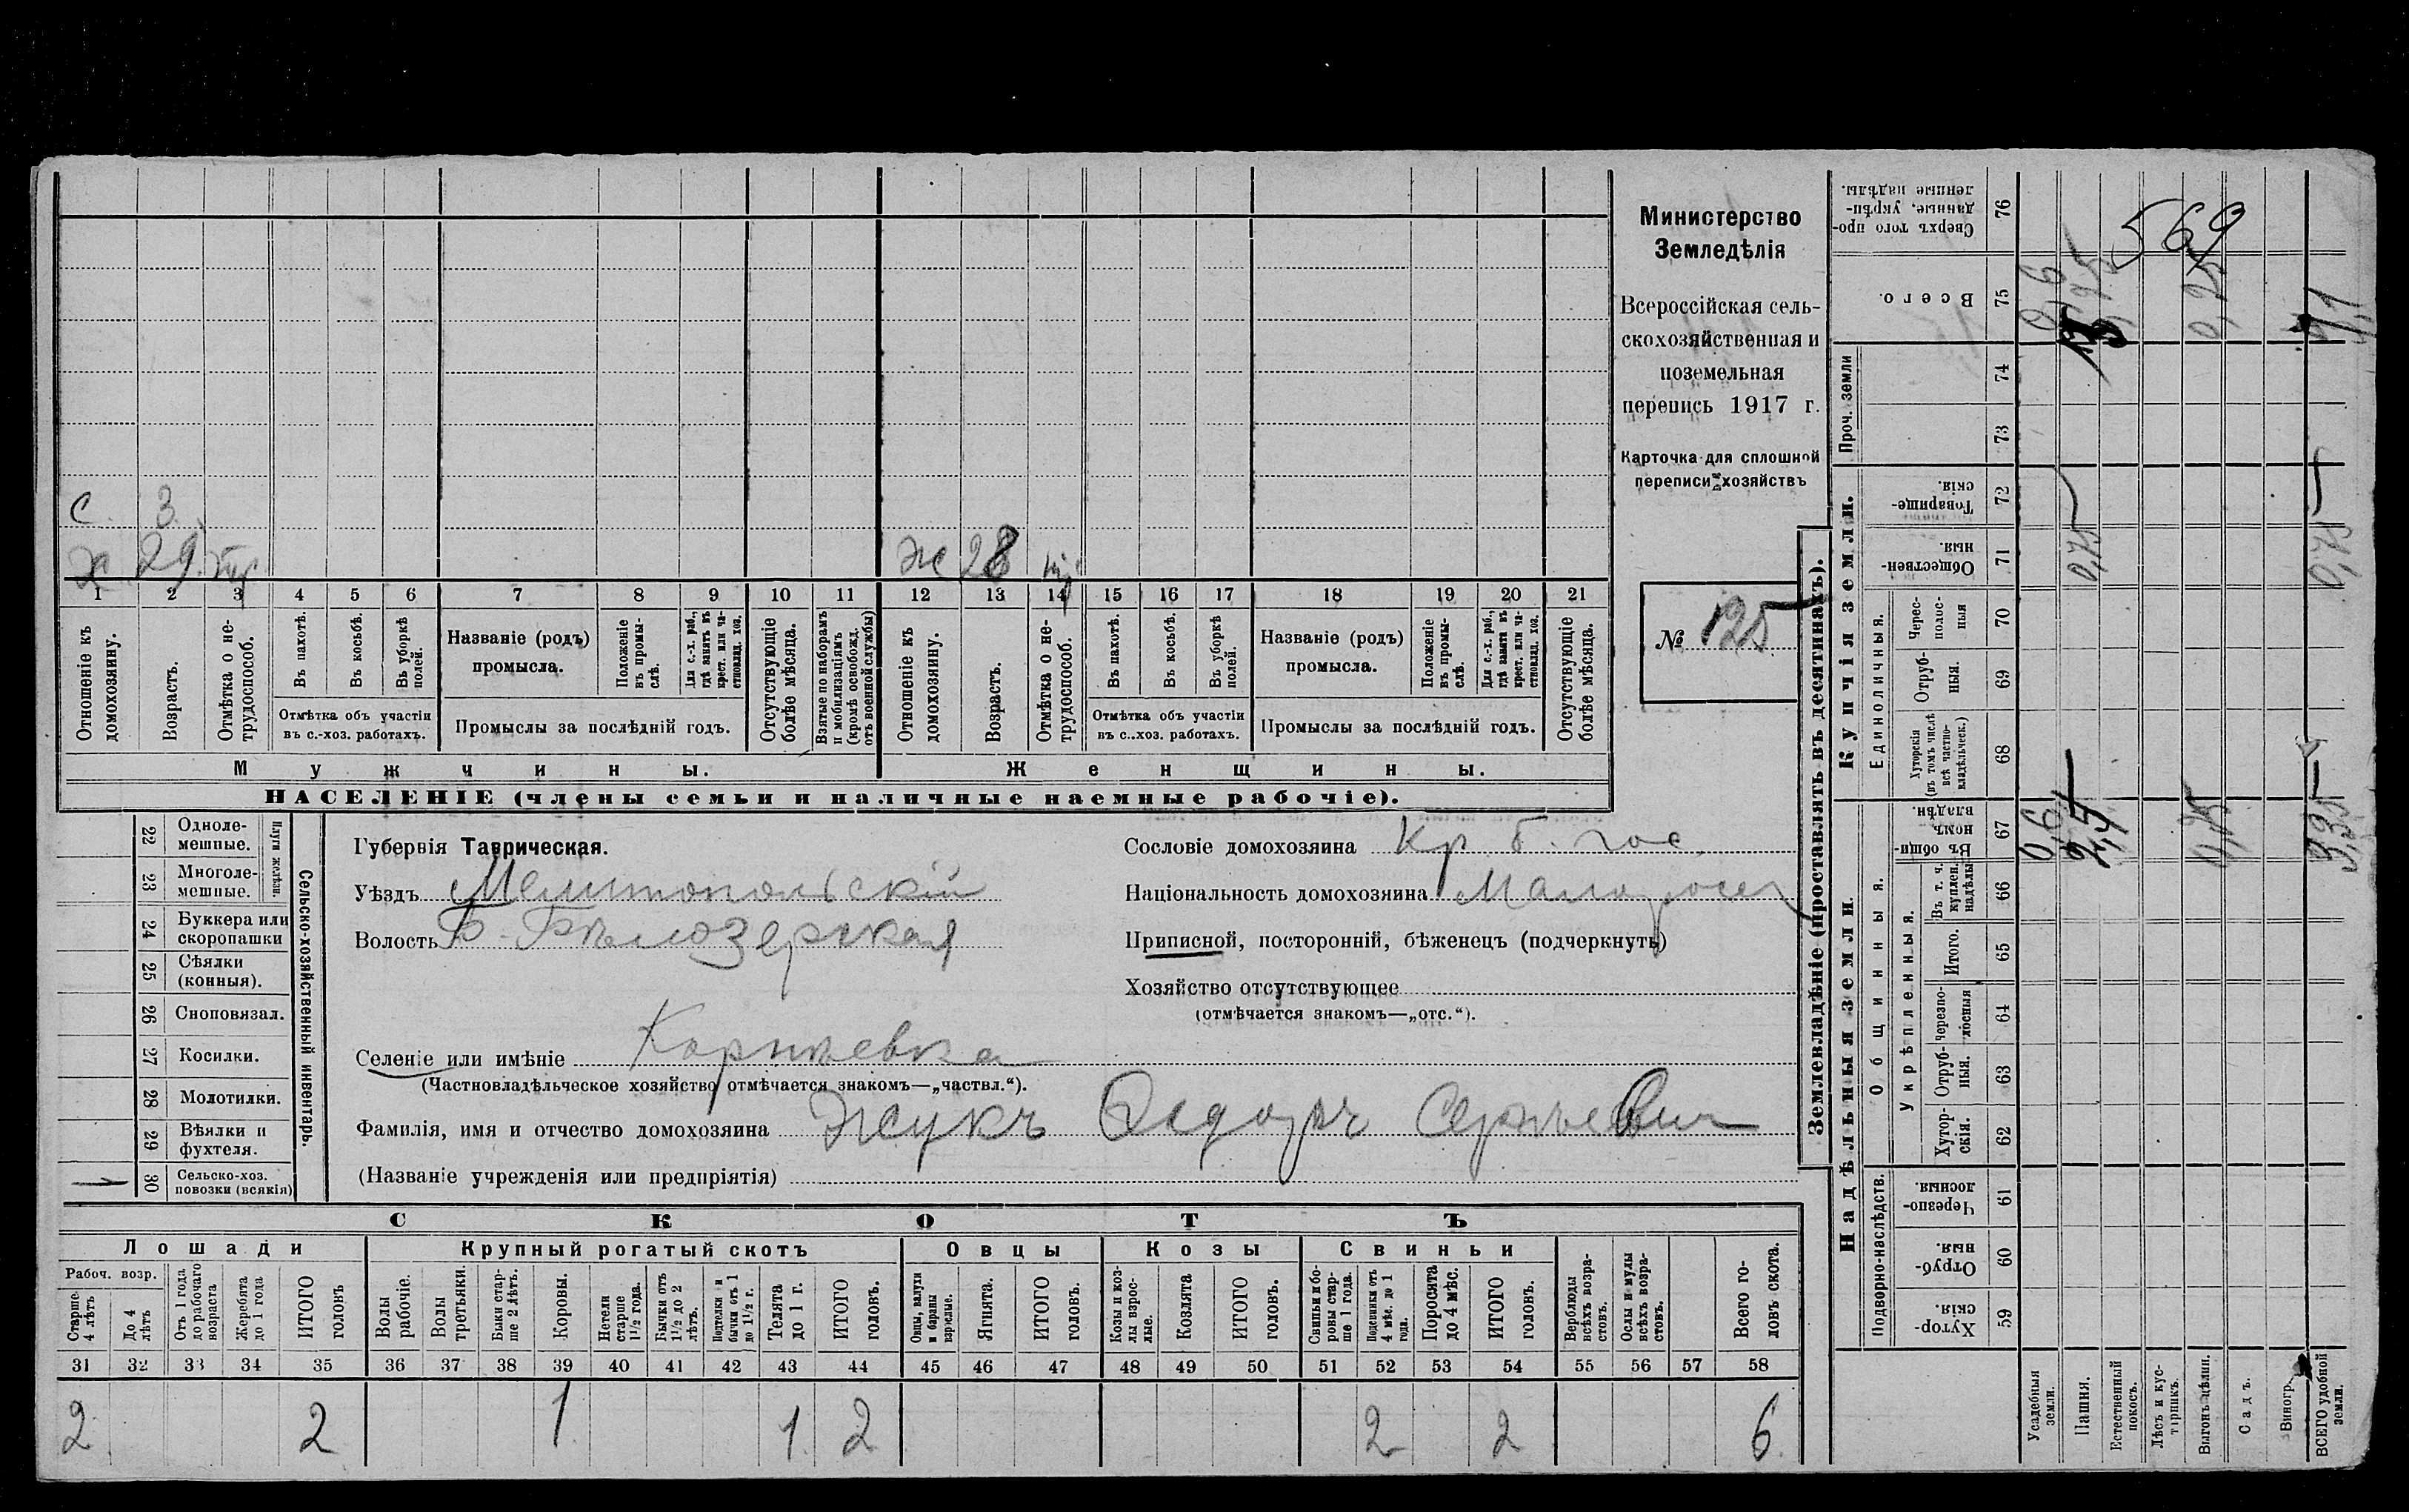 Министерство
Земледѣлія
Всероссійская сель-
скохозяйственная и
поземельная
перепись 1917 г.
Карточка для сплошной
переписи хозяйствъ
№ 125
С. 3.
Х 29 тр
Ж 28 тр
1 2 3 4 5 6 7 8 9 10 11 12 13 14 15 16 17 18 19 20 21
Отношеніе къ домохозяину.
Возрастъ.
Отмѣтка о не-трудоспособ.
Въ пахотѣ.
Въ косьбѣ.
Въ уборкѣ полей.
Отмѣтка объ участіи
въ с.-хоз. работахъ.
Названіе (родъ)
промысла.
Положеніе въ промы-слѣ.
Для с.-х. раб., гдѣ занятъ въ крест. или ча-стновлад. хоз.
Промыслы за послѣдній годъ.
Отсутствующіе болѣе мѣсяца.
Взятые по наборамъ и мобилизаціямъ (кромѣ освобожд. отъ военной службы)
Отношеніе къ домохозяину.
Возрастъ.
Отмѣтка о не-трудоспособ.
Въ пахотѣ.
Въ косьбѣ.
Въ уборкѣ полей.
Отмѣтка объ участіи
въ с..хоз. работахъ.
Названіе (родъ)
промысла.
Положеніе въ промы-слѣ.
Для с.-х. раб., гдѣ занята въ крест. или ча-стновлад. хоз.
Промыслы за послѣдній годъ.
Отсутствующіе болѣе мѣсяца.
Мужчины. Женщины.
НАСЕЛЕНІЕ (члены семьи и наличные наемные рабочіе).
Сельско-хозяйственный инвентарь.
Плуги желѣзн.
22 Одноле-мешные.
23 Многоле-мешные.
24 Буккера или скоропашки
25 Сѣялки (конныя).
26 Сноповязал.
27 Косилки.
28 Молотилки.
29 Вѣялки и фухтеля.
30 Сельско-хоз. повозки (всякія)
1
Губернія Таврическая.
Уѣздъ Мелитопольскій
Волость Б.-Бѣлозерская
Селеніе или имѣніе Корнѣевка
(Частновладѣльческое хозяйство отмѣчается знакомъ—„частвл.“).
Фамилія, имя и отчество домохозяина Жукъ Федоръ Сергѣевич
(Названіе учрежденія или предпріятія)
Сословіе домохозяина Кр. б. гос.
Національность домохозяина Малоросс
Приписной, посторонній, бѣженецъ (подчеркнуть)
Хозяйство отсутствующее
(отмѣчается знакомъ—„отс.“).
СКОТЪ
Лошади Крупный рогатый скотъ Овцы Козы Свиньи
Рабоч. возр.
Старше 4 лѣтъ
До 4 лѣтъ
Отъ 1 года до рабочаго возраста
Жеребята до 1 года
ИТОГО головъ
Волы рабочіе.
Волы третьяки.
Быки стар-ше 2 лѣтъ.
Коровы.
Нетели старше 1½ года.
Бычки отъ 1½ до 2 лѣтъ.
Подтелки и бычки отъ 1 до 1½ г.
Телята до 1 г.
ИТОГО головъ.
Овцы, валухи и бараны взрослые.
Ягнята.
ИТОГО головъ.
Козы и коз-лы взрос-лые.
Козлята
ИТОГО головъ.
Свиньи и бо-ровы стар-ше 1 года.
Подсвинки отъ 4 мѣс. до 1 года.
Поросята до 4 мѣс.
ИТОГО головъ.
Верблюды всѣхъ возра-стовъ.
Ослы и мулы всѣхъ возра-стовъ.
Всего го-ловъ скота.
31 32 33 34 35 36 37 38 39 40 41 42 43 44 45 46 47 48 49 50 51 52 53 54 55 56 57 58
2 2 1 1 2 2 2 6
Землевладѣніе (проставлять въ десятинахъ).
Надѣльныя земли. Купчія земли. Проч. земли
Подворно-наслѣдств.
Общинныя.
Укрѣпленныя.
Единоличныя.
59 Хутор-скія.
60 Отруб-ныя.
61 Черезпо-лосныя.
62 Хутор-скія.
63 Отруб-ныя.
64 Черезпо-лосныя
65 Итого.
66 Въ т. ч. куплен. надѣлы
67 Въ общи-номъ владѣн.
68 Хуторскія (въ томъ числѣ всѣ частно-владѣльческ.)
69 Отруб-ныя.
70 Черес-полос-ныя
71 Обществен-ныя
72 Товарище-скія.
73
74
75 Всего.
76 Сверхъ того про-данные, укрѣп-ленные надѣлы.
569
Усадебныя земли. 0,6 0,6
Пашня. 2,5 0,75
Естественный покосъ.
Лѣсъ и кус-тарникъ.
Выгонъ цѣлин. 0,25 0,25
Садъ.
Виногр.
ВСЕГО удобной земли. 3,35 0,75 4,1